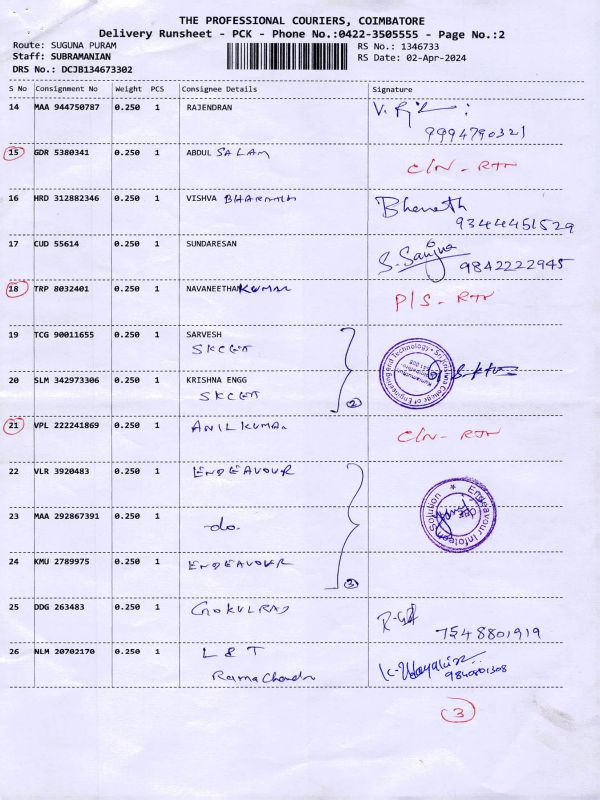 THE PROFESSIONAL COURIERS, COIMBATORE
Delivery Runsheet - PCK - Phone No.:0422-3505555 - Page No.:2
Route: SUGUNA PURAM
RS No.: 1346733
Staff: SUBRAMANIAN
RS Date: 02-Apr-2024
DRS No.: DCJB134673302
S No Consignment No Weight PCS Consignee Details Signature
14 MAA 944750787 0.250 1 RAJENDRAN
9994790321
15 GDR 5380341 0.250 1 ABDUL SALAM C/N - RTN
16 HRD 312882346 0.250 1 VISHVA BHARATH Bharath
9344451529
17 CUD 55614 0.250 1 SUNDARESAN S. Sanjna
9842222945
18 TRP 8032401 0.250 1 NAVANEETHAKUMAR P/S - RTN
19 TCG 90011655 0.250 1 SARVESH
SKCET
20 SLM 342973306 0.250 1 KRISHNA ENGG
SKCET
2
Sri Krishna College of Engineering and Technology
21 VPL 222241869 0.250 1 ANILKUMAR C/N - RTN
22 VLR 3920483 0.250 1 ENDEAVOUR
23 MAA 292867391 0.250 1 do.
Endeavour Infoteen Solution
24 KMU 2789975 0.250 1 ENDEAVOUR
3
25 DDG 263483 0.250 1 GOKULRAJ
7548801919
26 NLM 20702170 0.250 1 L & T
Rama Chandra
9840801308
3